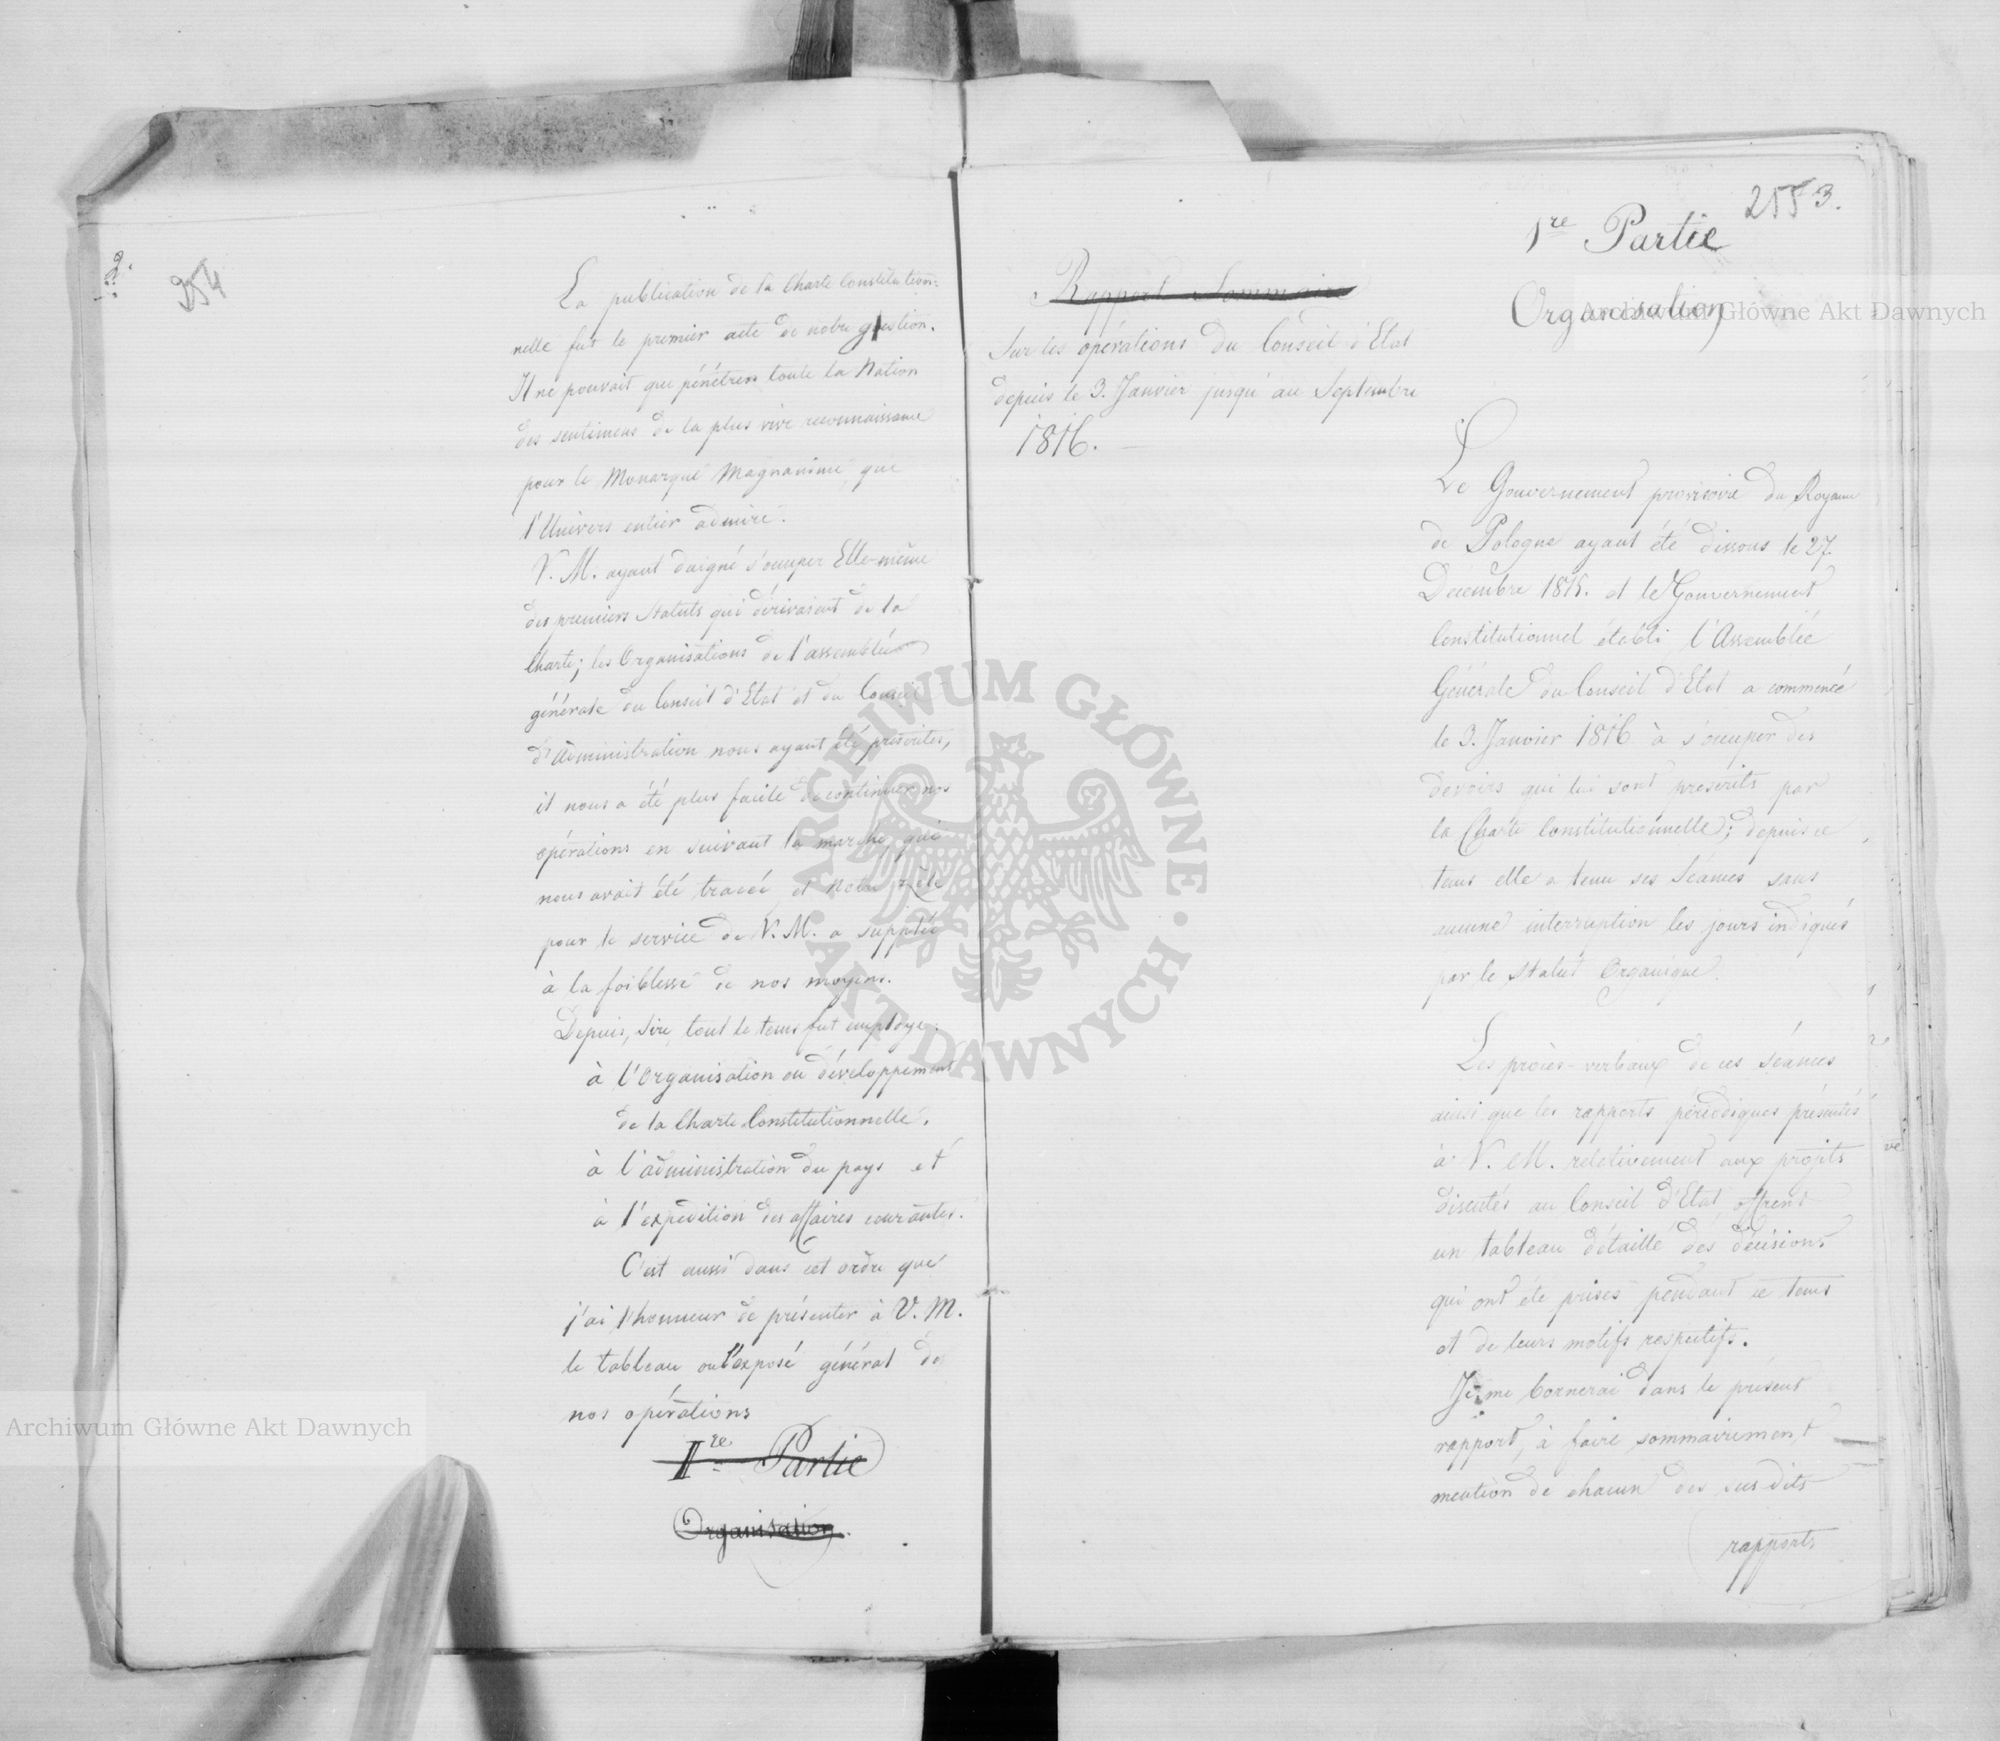 2.
254
La publication de la Charte Constitution-
nelle fut le premier acte de notre gestion.
Il ne pouvait que pénétrer toute la Nation
des sentimens de la plus vive reconnaissance
pour le Monarque Magnanime, que
l'Univers entier admire.
V. M. ayant daigné s'occuper Elle-même
des premiers Statuts qui dérivaient de la
Charte; les Organisations de l'assemblée
générale du Conseil d'Etat et du Conseil
d'Administration nous ayant été prescrites,
il nous a été plus facile de continuer nos
opérations en suivant la marche, qui
nous avait été tracée et notre zèle
pour le service de V. M. a suppléé
à la foiblesse de nos moyens.
Depuis, Sire, tout le tems fut employé:
à l'Organisation ou développement
de la Charte Constitutionnelle.
à l'administration du pays et
à l'expédition des affaires courantes.
C'est aussi dans cet ordre que
j'ai l'honneur de présenter à V. M.
le tableau ou l'exposé général de
nos opérations
Ire Partie
Organisation.
2553.
1re Partie
Organisation
Rapport Sommaire
Sur les opérations du Conseil d'Etat
depuis le 3. Janvier jusqu'au Septembre
1816. —
Le Gouvernement provisoire du Royaume
de Pologne ayant été dissous le 27.
Decembre 1815. et le Gouvernement
Constitutionnel établi, l'Assemblée
Générale du Conseil d'Etat a commencé
le 3. Janvier 1816 à s'occuper des
devoirs qui lui sont prescrits par
la Charte Constitutionnelle; depuis ce
tems elle a tenu ses Séances sans
aucune interruption les jours indiqués
par le Statut Organique.
Les procès-verbaux de ces séances
ainsi que les rapports périodiques présentés
à V. M. relativement aux projets
discutés au Conseil d'Etat offrent
un tableau détaillé des décisions
qui ont été prises pendant ce tems
et de leurs motifs respectifs.
Je me bornerai dans le présent
rapport, à faire sommairement
mention de chacun des sus-dits
rapports
ve
Archiwum Główne Akt Dawnych
ARCHIWUM GŁÓWNE · AKT DAWNYCH ·
Archiwum Główne Akt Dawnych